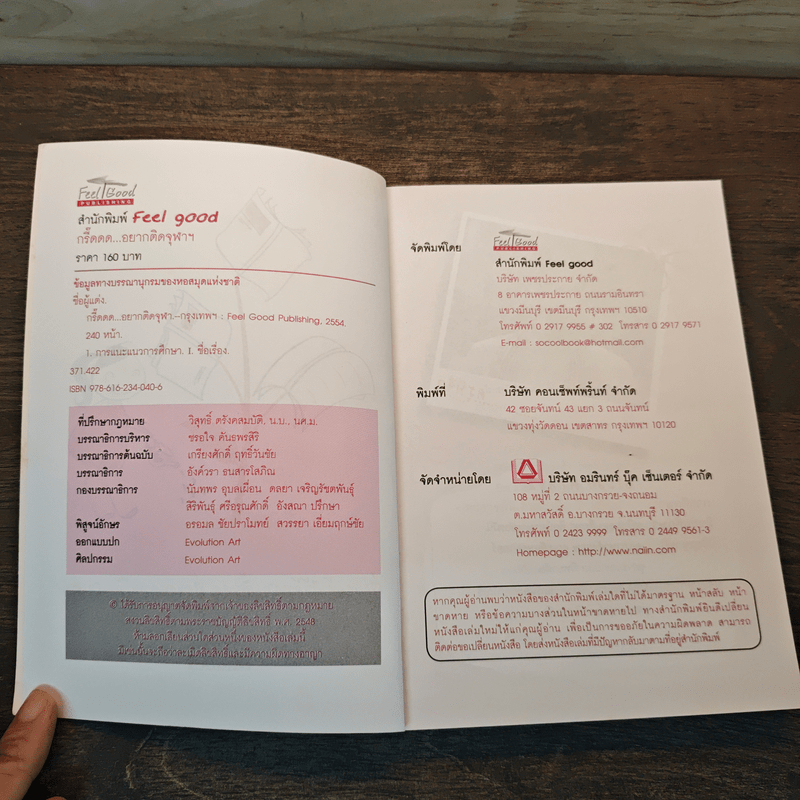 Feel Good
PUBLISHING
สำนักพิมพ์ Feel good
กรี๊ดดด...อยากติดจุฬาฯ
ราคา 160 บาท
ข้อมูลทางบรรณานุกรมของหอสมุดแห่งชาติ
ชื่อผู้แต่ง.
กรี๊ดดด...อยากติดจุฬาฯ.--กรุงเทพฯ : Feel Good Publishing, 2554.
240 หน้า.
1. การแนะแนวการศึกษา. I. ชื่อเรื่อง.
371.422
ISBN 978-616-234-040-6
ที่ปรึกษากฎหมาย วิสุทธิ์ ตรังคสมบัติ, น.บ., นศ.ม.
บรรณาธิการบริหาร ชรอใจ คันธพรสิริ
บรรณาธิการต้นฉบับ เกรียงศักดิ์ ฤทธิ์วันชัย
บรรณาธิการ อังค์วรา ธนสารโสภิณ
กองบรรณาธิการ นันทพร อุบลเผื่อน ดลยา เจริญรัชตพันธุ์
สิริพันธุ์ ศรีอรุณศักดิ์ อังสณา ปรึกษา
พิสูจน์อักษร อรอมล ชัยปราโมทย์ สวรรยา เอี่ยมฤกษ์ชัย
ออกแบบปก Evolution Art
ศิลปกรรม Evolution Art
© ได้รับการอนุญาตจัดพิมพ์จากเจ้าของลิขสิทธิ์ตามกฎหมาย
สงวนลิขสิทธิ์ตามพระราชบัญญัติลิขสิทธิ์ พ.ศ. 2548
ห้ามลอกเลียนส่วนใดส่วนหนึ่งของหนังสือเล่มนี้
มิเช่นนั้นจะถือว่าละเมิดลิขสิทธิ์และมีความผิดทางอาญา
จัดพิมพ์โดย
Feel Good
PUBLISHING
สำนักพิมพ์ Feel good
บริษัท เพชรประกาย จำกัด
8 อาคารเพชรประกาย ถนนรามอินทรา
แขวงมีนบุรี เขตมีนบุรี กรุงเทพฯ 10510
โทรศัพท์ 0 2917 9955 # 302 โทรสาร 0 2917 9571
E-mail : socoolbook@hotmail.com
พิมพ์ที่ บริษัท คอนเซ็พท์พริ้นท์ จำกัด
42 ซอยจันทน์ 43 แยก 3 ถนนจันทน์
แขวงทุ่งวัดดอน เขตสาทร กรุงเทพฯ 10120
จัดจำหน่ายโดย บริษัท อมรินทร์ บุ๊ค เซ็นเตอร์ จำกัด
108 หมู่ที่ 2 ถนนบางกรวย-จงถนอม
ต.มหาสวัสดิ์ อ.บางกรวย จ.นนทบุรี 11130
โทรศัพท์ 0 2423 9999 โทรสาร 0 2449 9561-3
Homepage : http://www.naiin.com
หากคุณผู้อ่านพบว่าหนังสือของสำนักพิมพ์เล่มใดที่ไม่ได้มาตรฐาน หน้าสลับ หน้า
ขาดหาย หรือข้อความบางส่วนในหน้าขาดหายไป ทางสำนักพิมพ์ยินดีเปลี่ยน
หนังสือเล่มใหม่ให้แก่คุณผู้อ่าน เพื่อเป็นการขออภัยในความผิดพลาด สามารถ
ติดต่อขอเปลี่ยนหนังสือ โดยส่งหนังสือเล่มที่มีปัญหากลับมาตามที่อยู่สำนักพิมพ์